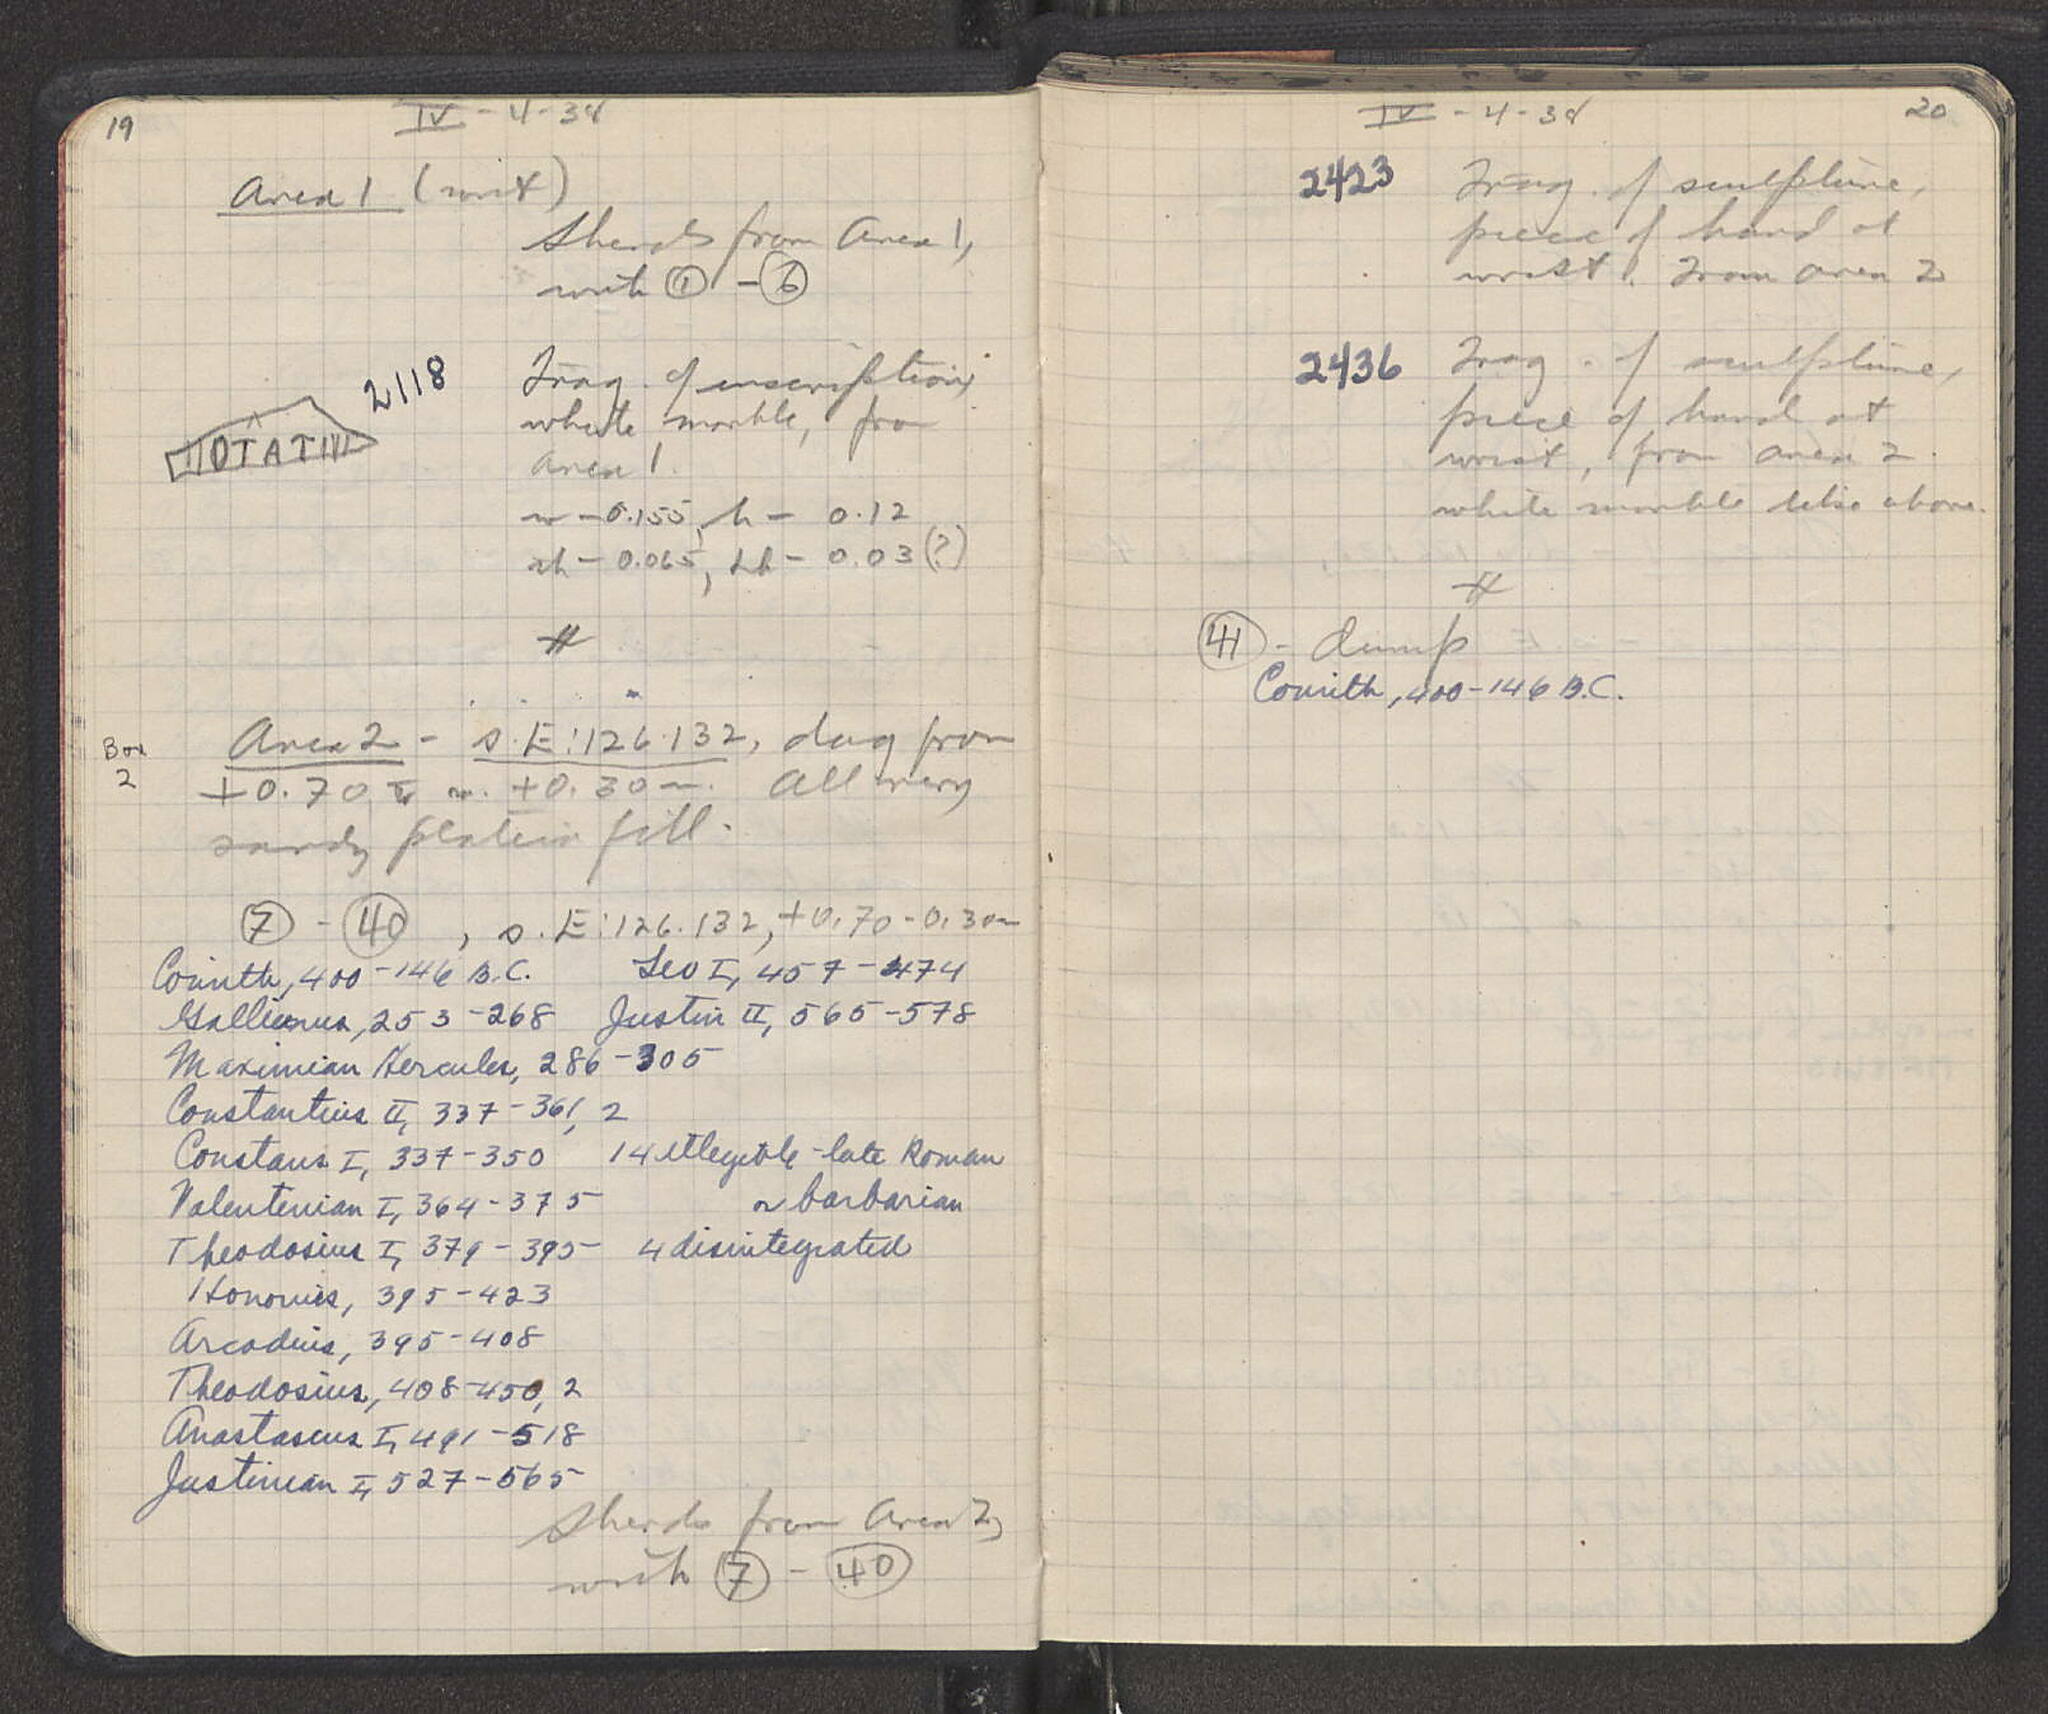 19
IV - 4 - 38
Area 1 (cont)
Sherds from Area 1,
with ① - ⑥
2118
Frag. of inscription,
white marble, from
Area 1.
w - 0.155, h - 0.12
th - 0.065, Lh - 0.03 (?)
OTAT
#
Box
2
Area 2 - s. E:126.132, dug from
+0.70 to +0.30 m. All very
sandy plateia fill.
⑦ - ㊵, s. E:126.132, +0.70 - 0.30 m
Corinth, 400-146 B.C. Leo I, 457-474
Gallienus, 253-268 Justin II, 565-578
Maximian Hercules, 286-305
Constantius II, 337-361, 2
Constans I, 337-350 14 illegible - late Roman
Valentenian I, 364-375 or barbarian
Theodosius I, 379-395 4 disintegrated
Honorius, 395-423
Arcadius, 395-408
Theodosius, 408-450, 2
Anastasius I, 491-518
Justinian I, 527-565
Sherds from Area 2,
with ⑦ - ㊵
IV - 4 - 38
20
2423 Frag. of sculpture,
piece of hand at
wrist. From area 2
2436 Frag. of sculpture,
piece of hand at
wrist, from area 2.
white marble like above.
#
㊶ - dump
Corinth, 400-146 B.C.